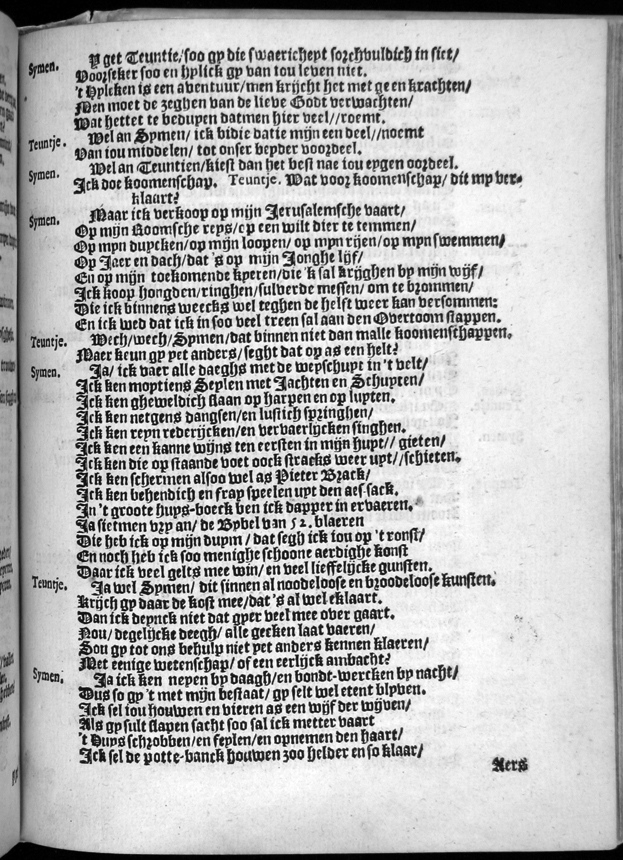 Symen. Y get Teuntie/ soo gy die swaericheyt sorchvuldich in siet/
Voorseker soo en hylick gy van iou leven niet.
't Hylcken is een aventuur/ men krijcht het met geen krachten/
Men moet de zeghen van de lieve Godt verwachten/
Wat hettet te beduyen datmen hier veel//roemt.
Teuntje. Wel an Symen/ ick bidie datie mijn een deel//noemt
Van iou middelen/ tot onser beyder voordeel.
Symen. Wel an Teuntien/ kiest dan het best nae iou eygen oordeel.
Ick doe koomenschap. Teuntje. Wat voor koomenschap/ dit my ver-
klaart?
Symen. Maar ick verkoop op mijn Jerusalemsche vaart/
Op mijn Roomsche reys/ op een wilt dier te temmen/
Op myn duycken/ op mijn loopen/ op myn rijen/ op myn swemmen/
Op Jaer en dach/ dat 's op mijn Jonghe lijf/
En op mijn toekomende kyeren/ die 'k sal krijghen by mijn wijf/
Ick koop hongden/ ringhen/ sulverde messen/ om te brommen/
Die ick binnens weecks wel teghen de helst weer kan versommen:
En ick wed dat ick in soo veel treen sal aan den Overtoom stappen.
Teuntje. Wech/ wech/ Symen/ dat binnen niet dan malle koomenschappen.
Maer keun gy yet anders/ seght dat op as een helt?
Symen. Ja/ ick vaer alle daeghs met de weyschuyt in 't velt/
Ick ken moytiens Seylen met Jachten en Schuyten/
Ick ken gheweldich slaan op harpen en op luyten.
Ick ken netgens dangsen/ en lustich springhen/
Ick ken reyn rederijcken/ en vervaerlycken singhen.
Ick ken een kanne wijns ten eersten in mijn huyt// gieten/
Ick ken die op staande voet oock stracks weer uyt//schieten.
Ick ken schermen alsoo wel as Pieter Brack/
Ick ken behendich en fray speelen uyt den aes-sack.
In 't groote huys-boeck ben ick dapper in ervaeren.
Ja sietmen vry an/ de Bybel van 52. blaeren
Die heb ick op mijn duym/ dat segh ick iou op 't ronst/
En noch heb ick soo menighe schoone aerdighe konst
Daar ick veel gelts mee win/ en veel lieffelijcke gunsten.
Teuntje. Ja wel Symen/ dit sinnen al noodeloose en broodeloose kunsten.
Krijch gy daar de kost mee/ dat 's al wel eklaart.
Dan ick deynck niet dat gyer veel mee over gaart.
Nou/ degelijcke deegh/ alle gecken laat vaeren/
Sou gy tot ons behulp niet yet anders kennen klaeren/
Met eenige wetenschap/ of een eerlijck ambacht?
Symen. Ja ick ken neyen by daagh/ en bondt-wercken by nacht/
Dus so gy 't met mijn bestaat/ gy selt wel etent blyven.
Ick sel iou houwen en vieren as een wijf der wyven/
Als gy sult slapen sacht soo sal ick metter vaart
't Huys schrobben/ en feylen/ en opnemen den haart/
Ick sel de potte-banck houwen zoo helder en so klaar/
Aers